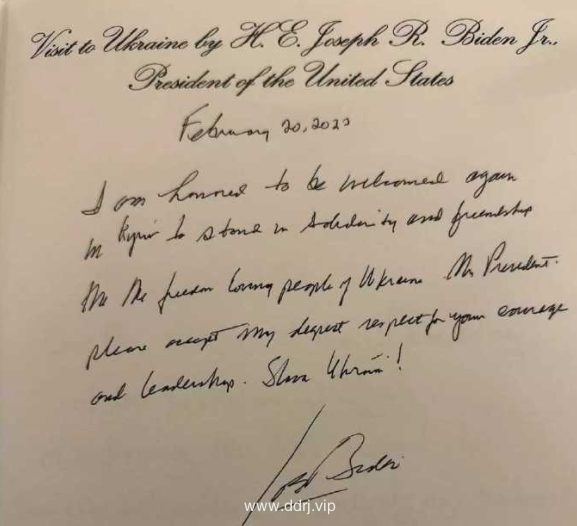 Visit to Ukraine by H. E. Joseph R. Biden Jr.,
President of the United States
February 20, 2023
I am honored to be welcomed again
in Kyiv to stand in solidarity and friendship
the freedom loving people of Ukraine Mr President.
please accept my deepest respect for your courage
and leadership. Slava Ukraini!
Joe Biden
www.ddrj.vip